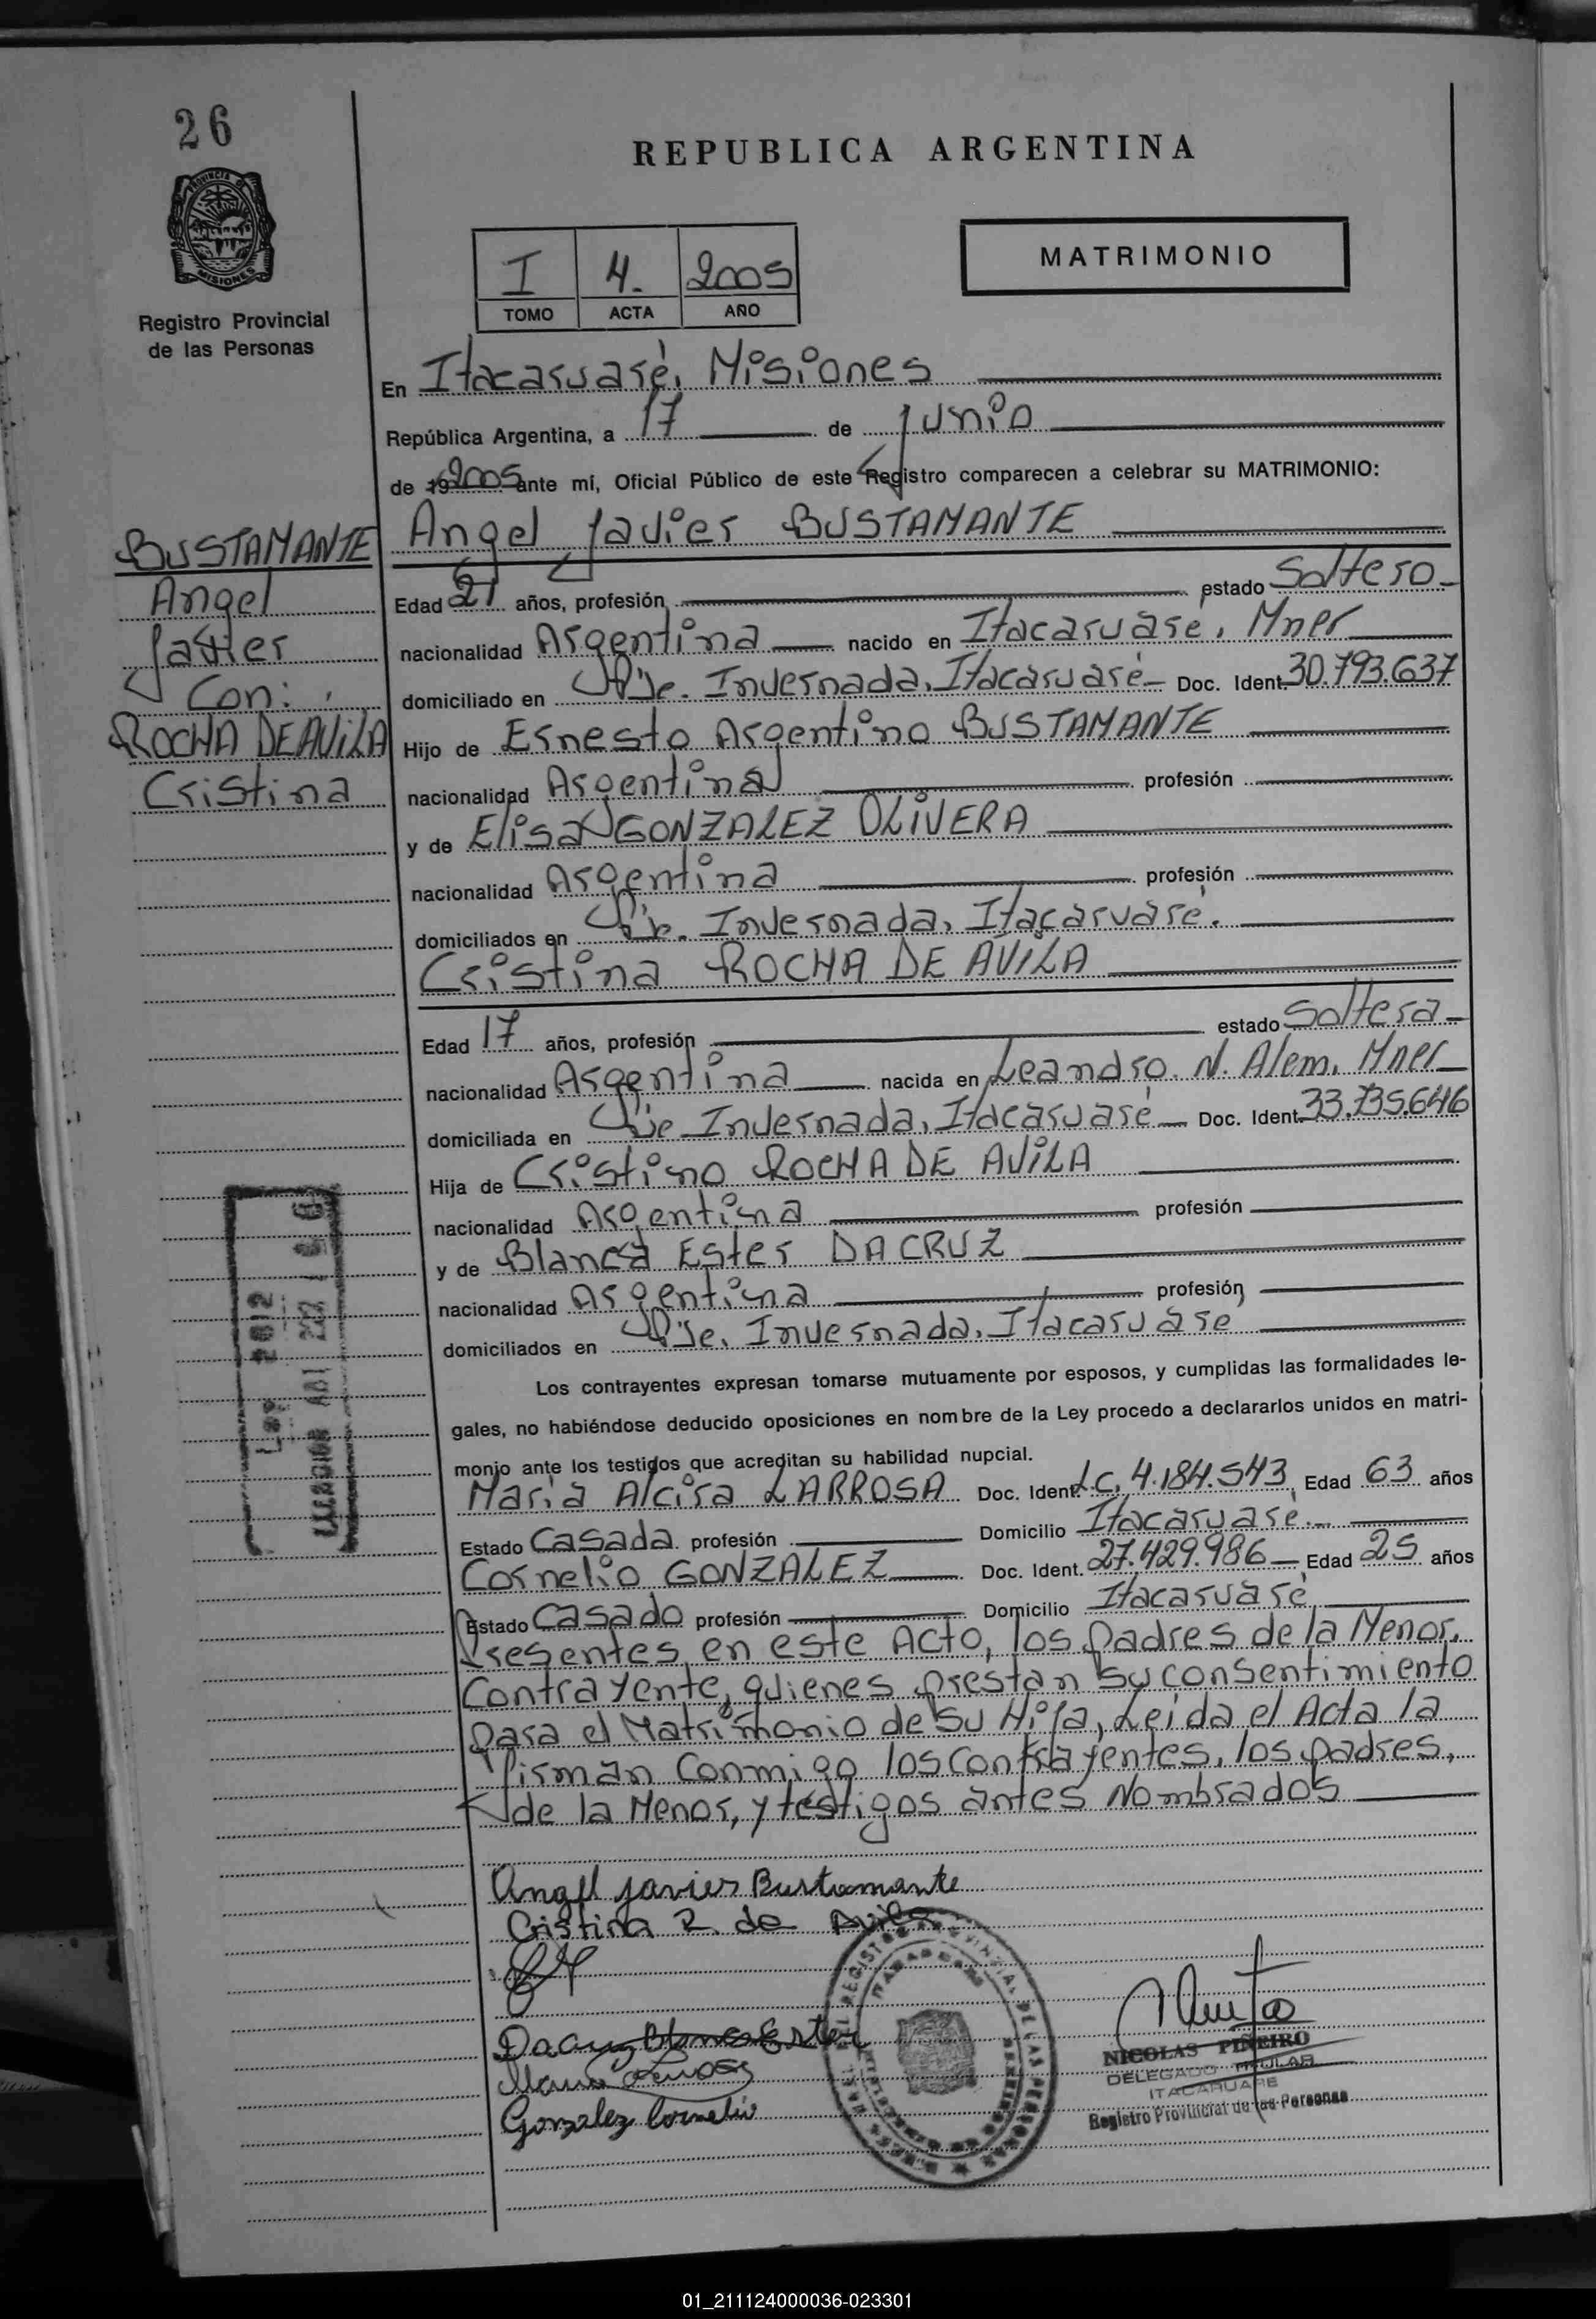 26
REPUBLICA ARGENTINA
PROVINCIA DE
MISIONES
Registro Provincial
de las Personas
I 4. 2005
TOMO ACTA AÑO
MATRIMONIO
En Itacaruaré, Misiones
República Argentina, a 17 de junio
de 19 2005 ante mí, Oficial Público de este Registro comparecen a celebrar su MATRIMONIO:
BUSTAMANTE
Angel
Javier
Con:
ROCHA DE AVILA
Cristina
Angel Javier BUSTAMANTE
Edad 21 años, profesión estado Soltero
nacionalidad Argentina nacido en Itacaruare, Mnes
domiciliado en Pje. Invernada, Itacaruaré Doc. Ident. 30.793.637
Hijo de Ernesto Argentino BUSTAMANTE
nacionalidad Argentina profesión
y de Elisa GONZALEZ OLIVERA
nacionalidad Argentina profesión
domiciliados en Pje. Invernada, Itacaruaré.
Cristina ROCHA DE AVILA
Edad 17 años, profesión estado Soltera
nacionalidad Argentina nacida en Leandro. N. Alem, Mnes
domiciliada en Pje Invernada, Itacaruaré Doc. Ident. 33.735.646
Hija de Cristino ROCHA DE AVILA
nacionalidad Argentina profesión
y de Blanca Ester DACRUZ
nacionalidad Argentina profesión
domiciliados en Pje. Invernada, Itacaruare
Los contrayentes expresan tomarse mutuamente por esposos, y cumplidas las formalidades le-
gales, no habiéndose deducido oposiciones en nombre de la Ley procedo a declararlos unidos en matri-
monio ante los testigos que acreditan su habilidad nupcial.
Maria Alcira LARROSA Doc. Ident. L.C. 4.184.543 Edad 63 años
Estado Casada profesión Domicilio Itacaruaré.
Cornelio GONZALEZ Doc. Ident. 27.429.986 Edad 25 años
Estado Casado profesión Domicilio Itacaruaré
Presentes en este Acto, los padres de la Menor,
Contrayente, quienes prestan su consentimiento
para el Matrimonio de su Hija, Leida el Acta la
firman conmigo los contrayentes, los padres,
de la Menor, y testigos antes Nombrados
Angel Javier Bustamante
Cristina R. de Avila
Dacruz Blanca Ester
Maria Larrosa
Gonzalez Cornelio
NICOLAS PIÑEIRO
DELEGADO TITULAR
ITACARUARE
Registro Provincial de las Personas
01_211124000036-023301